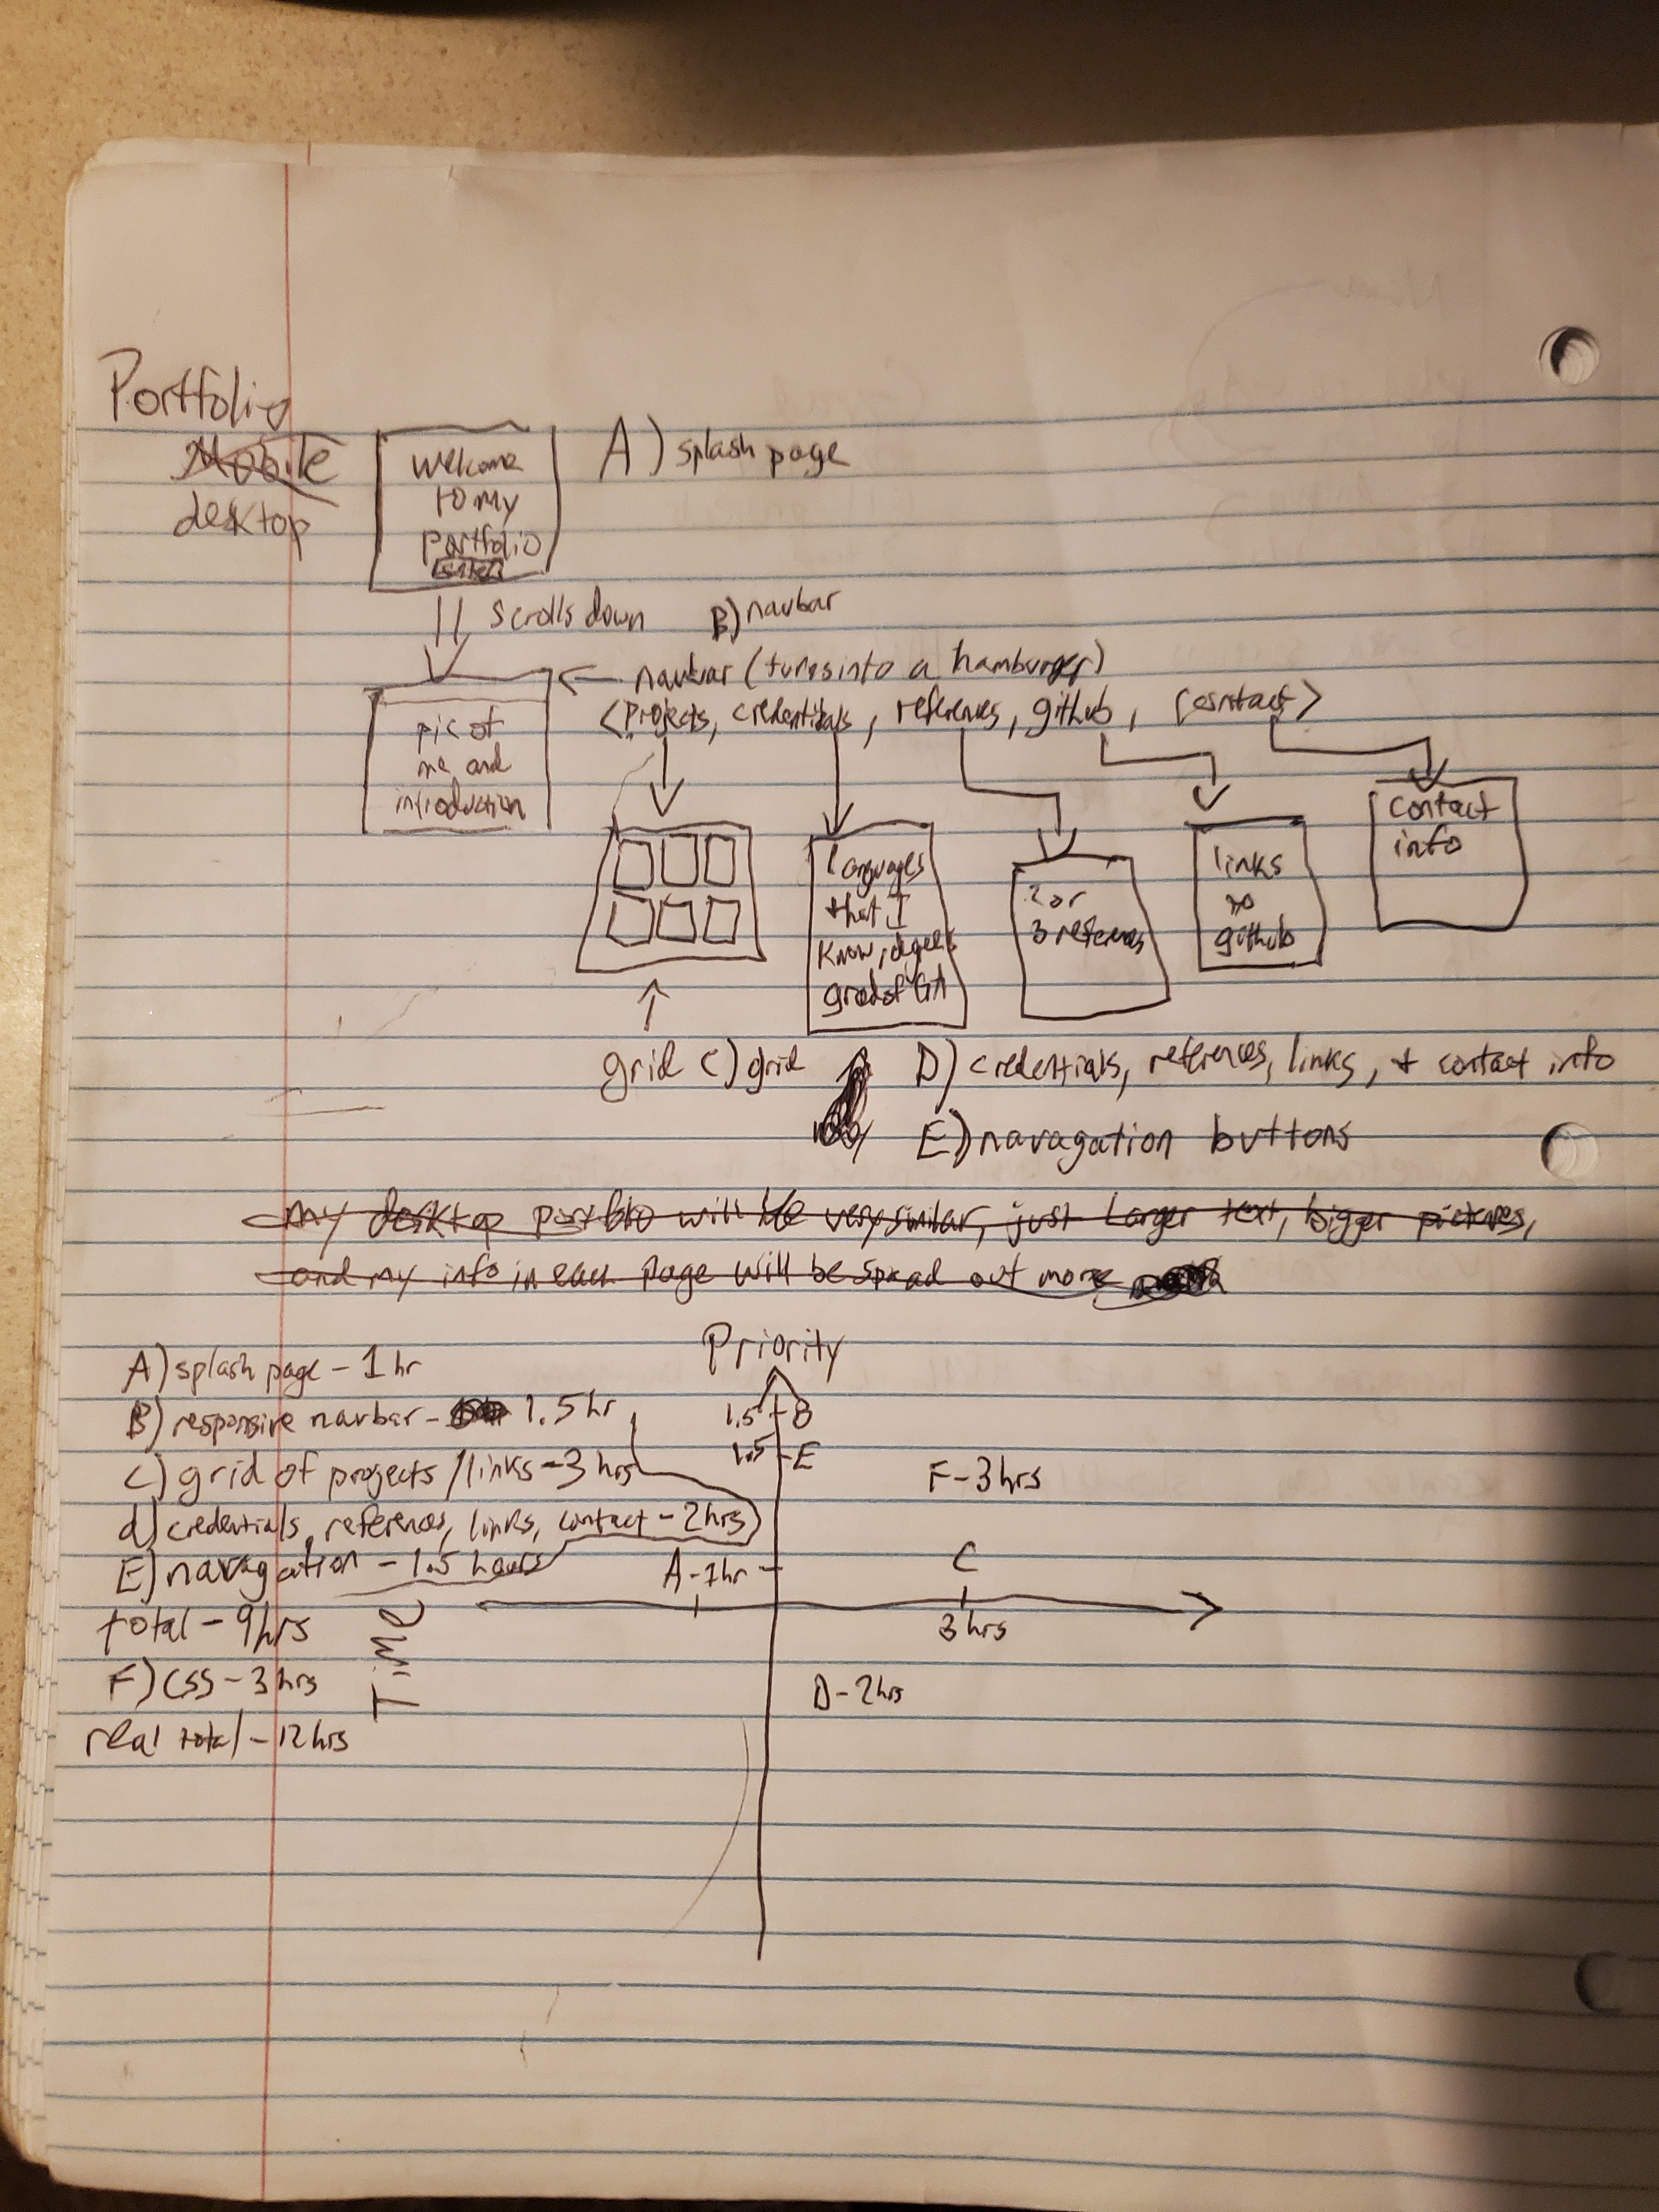 Portfolio
Mobile
desktop
welcome
to my
portfolio
A) splash page
scrolls down
B) navbar
navbar (turns into a hamburger)
<projects, credentials, references, github, contact>
pic of
me and
introduction
languages
that I
know, degree
grad of GA
2 or
3 references
links
to
github
contact
info
grid C) grid
D) credentials, references, links, + contact info
E) navagation buttons
my desktop portfolio will be very similar, just larger text, bigger pictures,
and my info in each page will be spread out more
A) splash page - 1 hr
B) responsive navbar - 1.5 hr
C) grid of projects / links - 3 hrs
d) credentials, references, links, contact - 2 hrs
E) navagation - 1.5 hours
total - 9 hrs
F) CSS - 3 hrs
real total - 12 hrs
Priority
1.5 B
1.5 E
F - 3 hrs
A - 1 hr
C
3 hrs
Time
D - 2 hrs